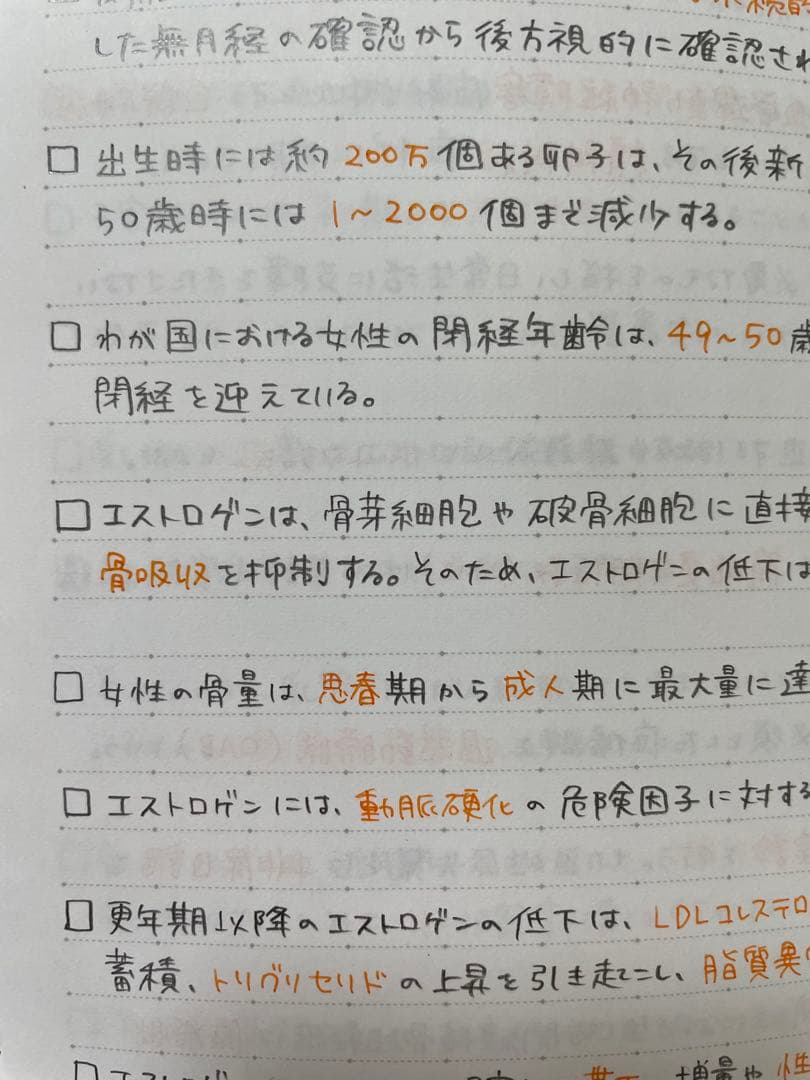 した無月経の確認から後方視的に確認され
□ 出生時には約 200万個ある卵子は、その後新
50歳時には 1～2000 個まで減少する。
□ わが国における女性の閉経年齢は、49～50歳
閉経を迎えている。
□ エストロゲンは、骨芽細胞や破骨細胞に直接
骨吸収を抑制する。そのため、エストロゲンの低下は
□ 女性の骨量は、思春期から成人期に最大量に達
□ エストロゲンには、動脈硬化の危険因子に対する
□ 更年期以降のエストロゲンの低下は、LDLコレステロ
蓄積、トリグリセリドの上昇を引き起こし、脂質異